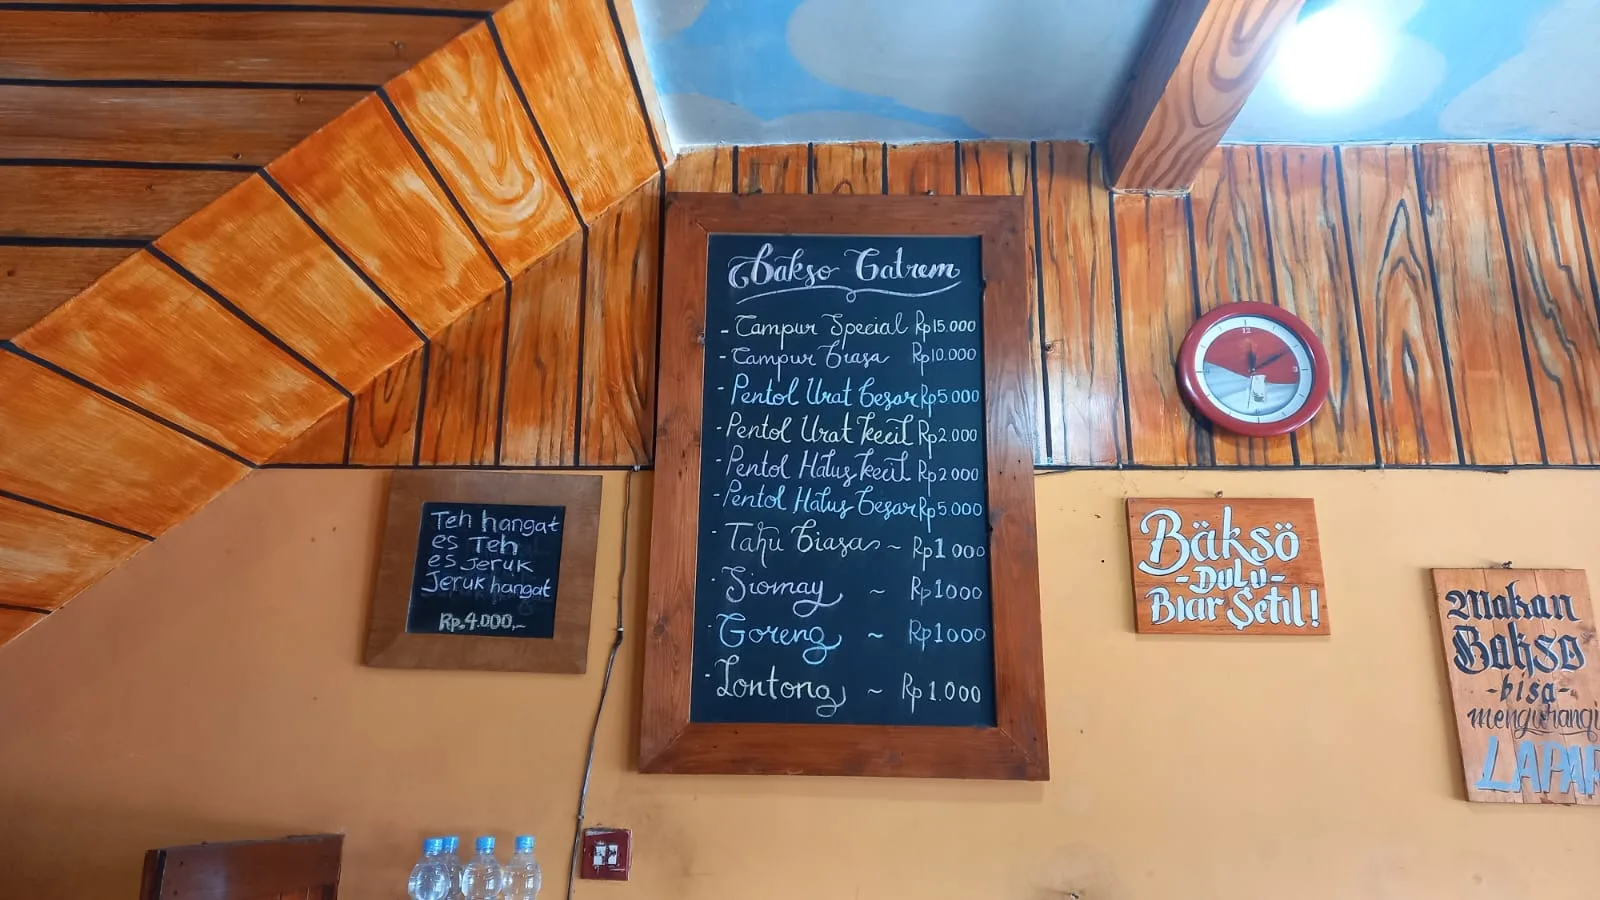 Bakso Gatrem
- Campur Special Rp15.000
- Campur biasa Rp10.000
- Pentol Urat besar Rp5000
- Pentol Urat kecil Rp2.000
- Pentol Halus kecil Rp2000
- Pentol Halus besar Rp5.000
- Tahu biasa ~ Rp1000
- Siomay ~ Rp1000
- Goreng ~ Rp1000
- Lontong ~ Rp1.000
Teh hangat
es Teh
es Jeruk
Jeruk hangat
Rp.4.000,-
12
3
Bäksö
-DULU-
BIAR SETIL!
Makan
Bakso
-bisa-
mengurangi
LAPAR